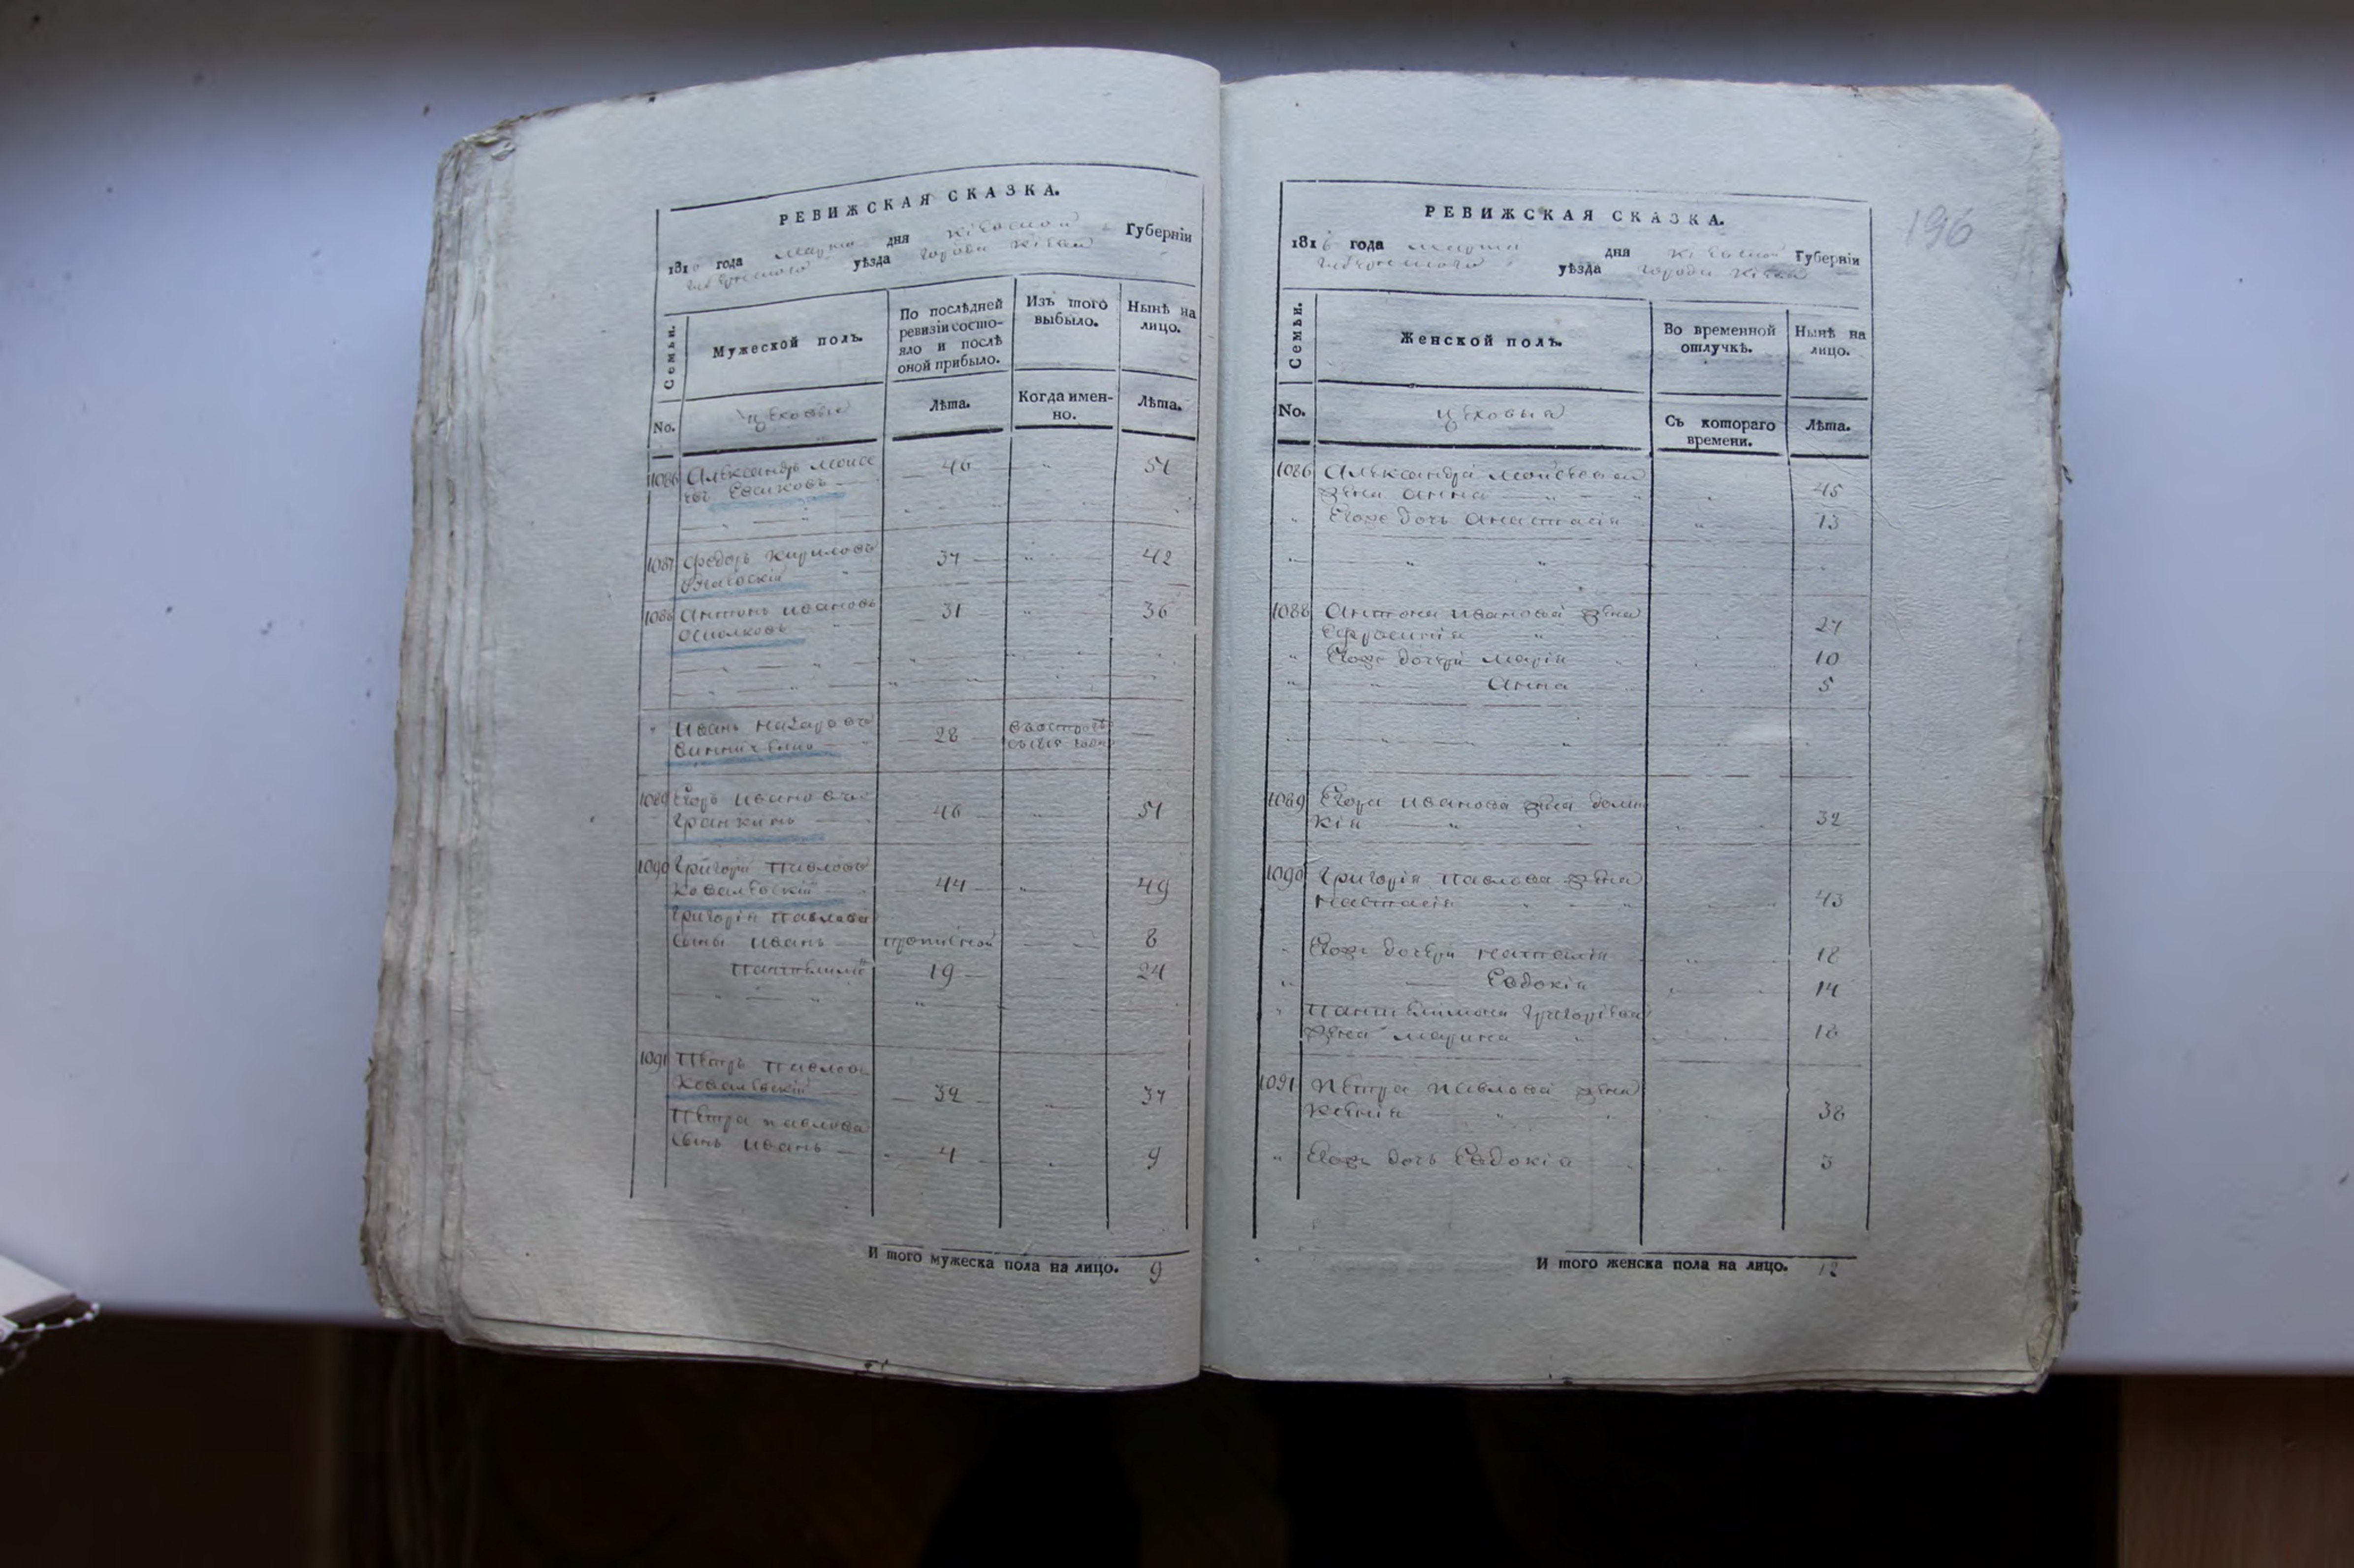 РЕВИЖСКАЯ СКАЗКА.
181 года марта дня Кіевской Губерніи
уѣзда города Кіева
Семьи.
Мужеской полъ.
По послѣдней ревизіи состояло и послѣ оной прибыло.
Изъ того выбыло.
Нынѣ на лицо.
No.
цеховые
Лѣта.
Когда именно.
Лѣта.
1086 Александръ Моисе
46 51
1087 Федоръ Кириловъ
37 42
1088 Антонъ Ивановъ
31 36
Иванъ Назаровъ
28
1089 Егоръ Ивановъ
Гранкинъ 46 51
1090 Григорій Павловъ
Ковалевскій 44 49
Григорія Павлова
сыны Иванъ 8
Пантелимо 19 24
1091 Петръ Павловъ
Ковалевскій 32 37
Петра Павлова
сынъ Иванъ 4 9
И того мужеска пола на лицо. 9
196
РЕВИЖСКАЯ СКАЗКА.
1816 года марта дня Кіевской Губерніи
уѣзда города Кіева
Семьи.
Женской полъ.
Во временной отлучкѣ.
Нынѣ на лицо.
No.
цеховыя
Съ котораго времени.
Лѣта.
1086 Александра Моисеева
жена Анна 45
Егоже дочь Анастасія 13
1088 Антона Иванова жена
Ефросинія 27
Егоже дочери Марія 10
Анна 5
1089 Егора Иванова жена
32
1090 Григорія Павлова жена
Настасія 43
Егоже дочери Наталія 18
Евдокія 14
Пантелимона Григорьева
жена Марина 18
1091 Петра Павлова жена
Ксенія 38
Егоже дочь Евдокія 3
И того женска пола на лицо. 12